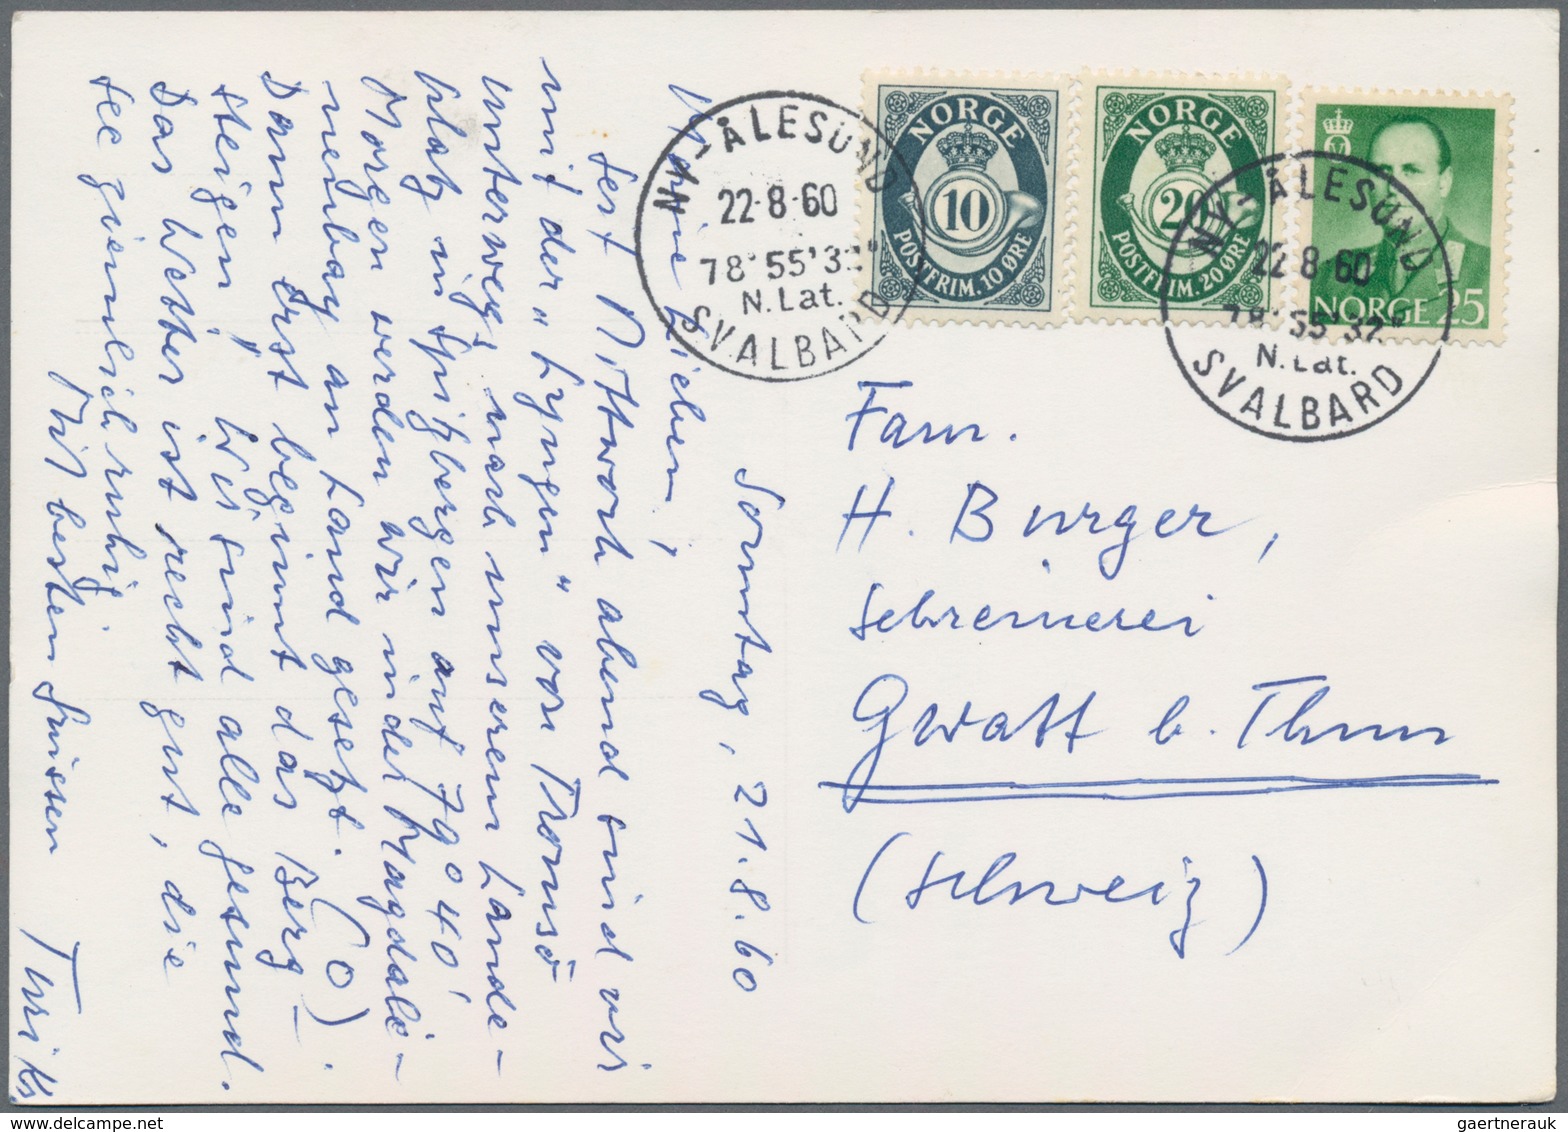 NORGE
10
POSTFRIM. 10 ØRE
NORGE
20
POSTFRIM. 20 ØRE
NORGE 25
NY-ÅLESUND
22-8-60
78°55'32"
N. Lat.
SVALBARD
NY-ÅLESUND
22-8-60
78°55'32"
N. Lat.
SVALBARD
Fam.
H. Burger,
Schreinerei
Gwatt b. Thun
(Schweiz)
Sonntag, 21.8.60
Meine Lieben,
Seit Mittwoch abend sind wir
mit der "Lyngen" von Tromsö
unterwegs nach unserem Lande-
platz in Spitzbergen auf 79°40'
Morgen werden wir in der Magdale-
nenbay an Land gesetzt. (o)
Dann erst beginnt das Berg-
steigen. Wir sind alle gesund.
Das Wetter ist recht gut, die
See ziemlich ruhig.
Mit besten Grüssen
gaertnerauk